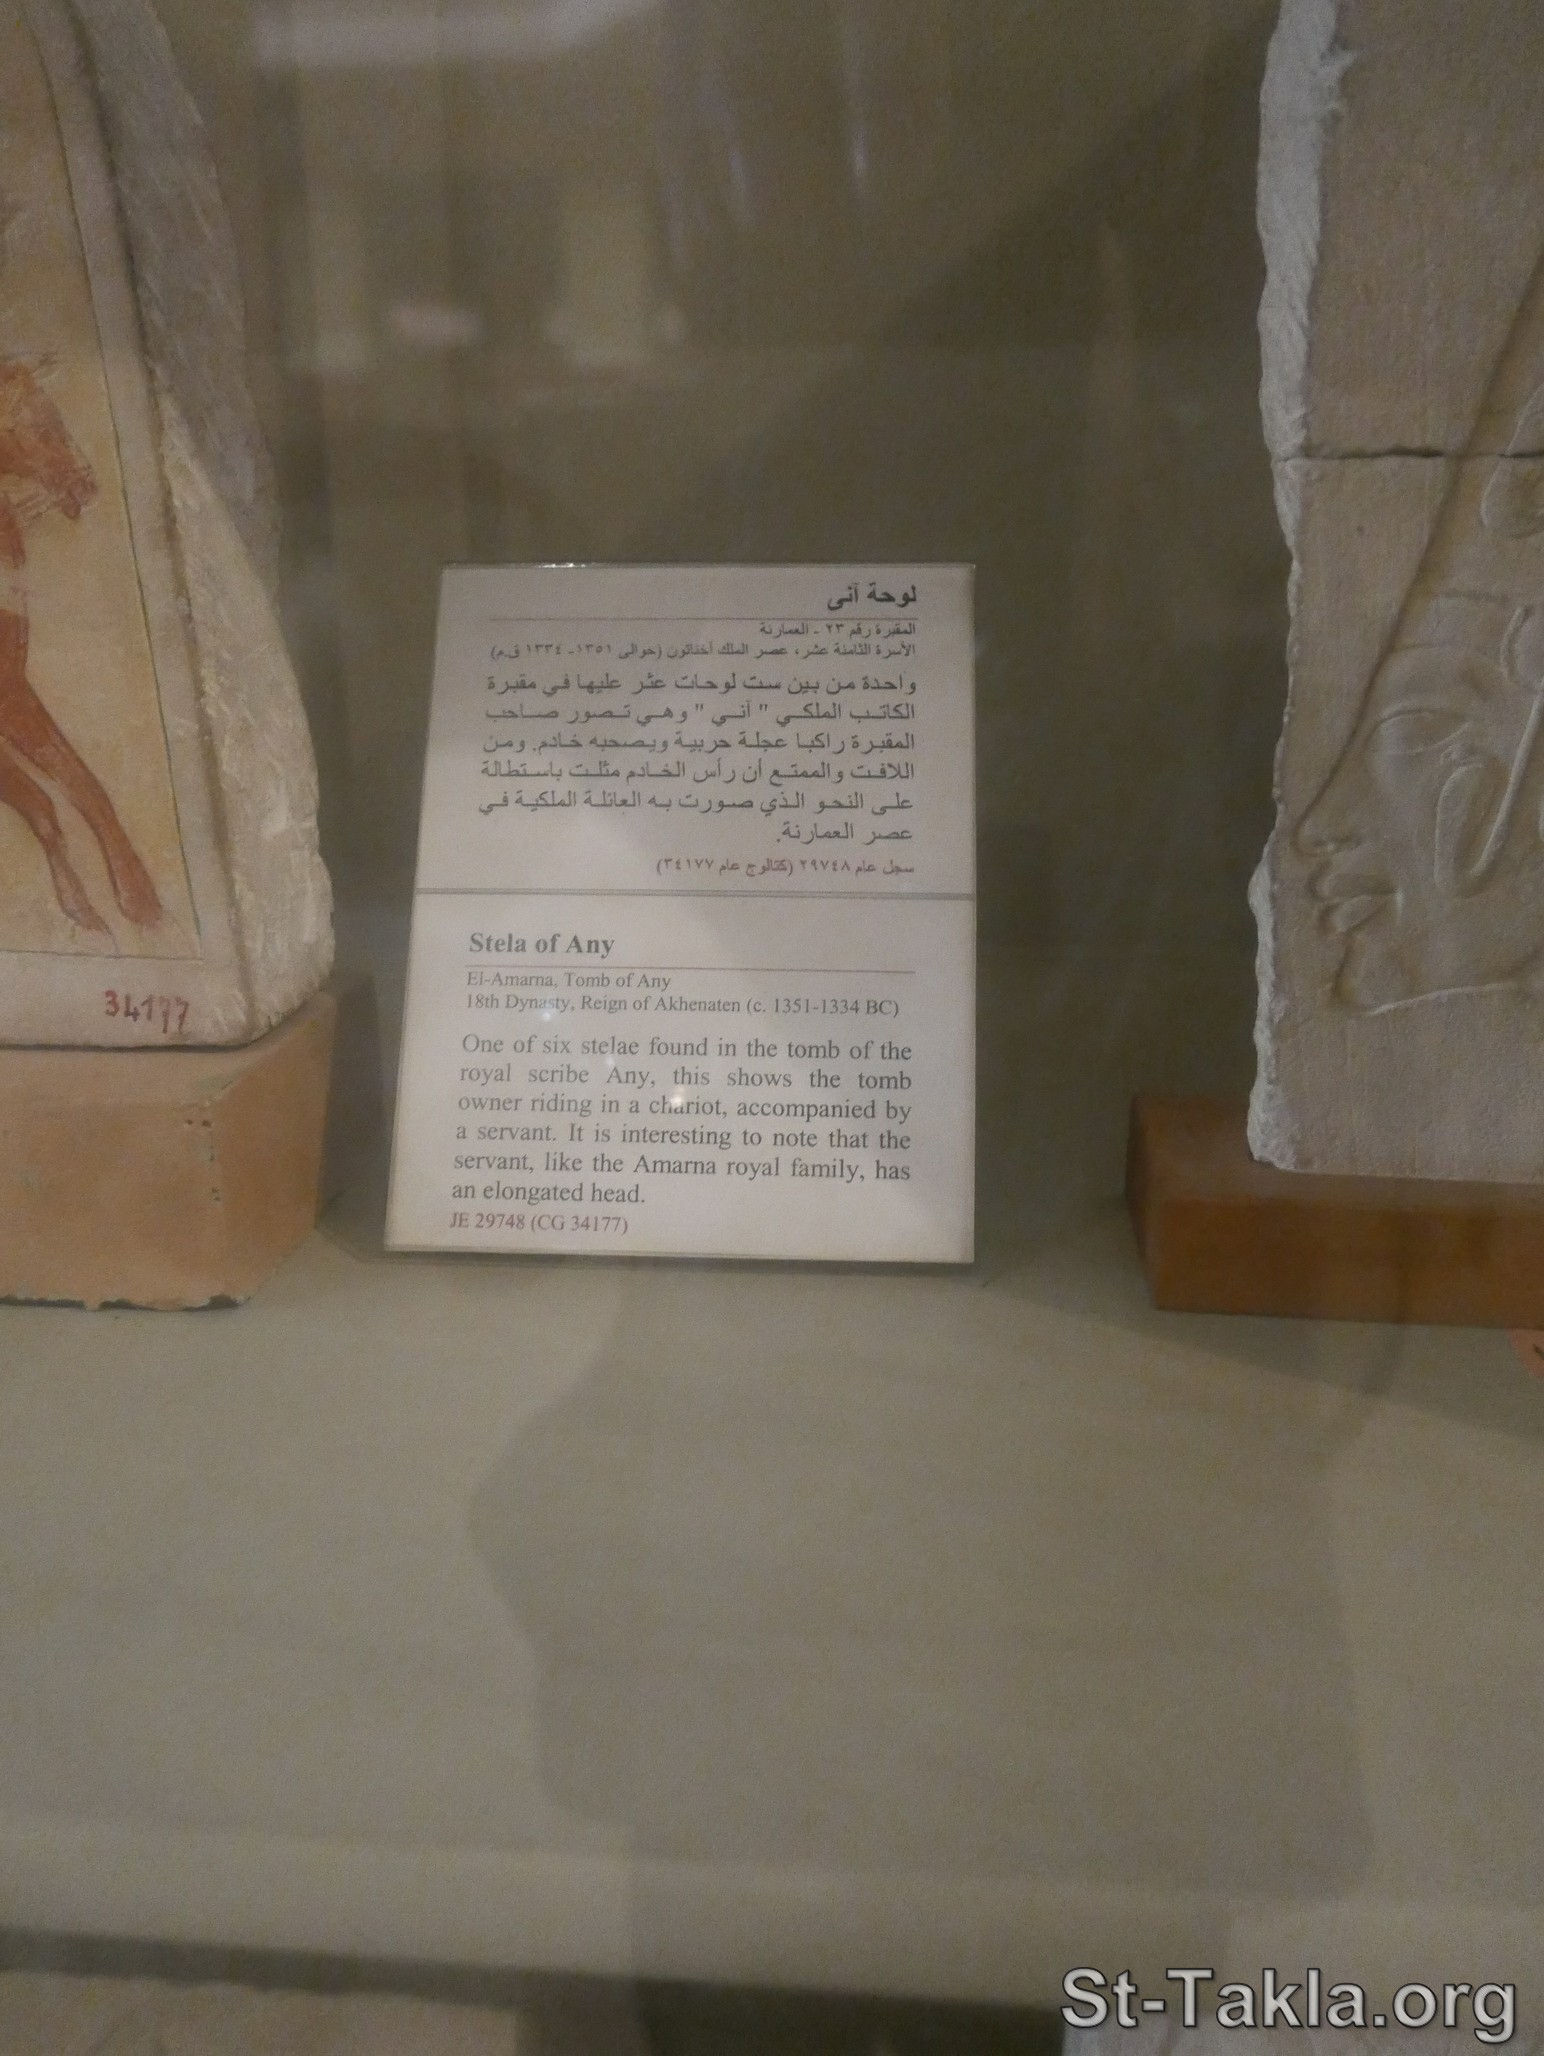 لوحة آنى
المقبرة رقم ٢٣ - العمارنة
الأسرة الثامنة عشر، عصر الملك أخناتون (حوالى ١٣٥١- ١٣٣٤ ق.م)
واحدة من بين ست لوحات عثر عليها في مقبرة
الكاتب الملكي " آني " وهي تصور صاحب
المقبرة راكبا عجلة حربية ويصحبه خادم. ومن
اللافت والممتع أن رأس الخادم مثلت باستطالة
على النحو الذي صورت به العائلة الملكية في
عصر العمارنة.
سجل عام ٢٩٧٤٨ (كتالوج عام ٣٤١٧٧)
Stela of Any
El-Amarna, Tomb of Any
18th Dynasty, Reign of Akhenaten (c. 1351-1334 BC)
One of six stelae found in the tomb of the
royal scribe Any, this shows the tomb
owner riding in a chariot, accompanied by
a servant. It is interesting to note that the
servant, like the Amarna royal family, has
an elongated head.
JE 29748 (CG 34177)
34177
St-Takla.org